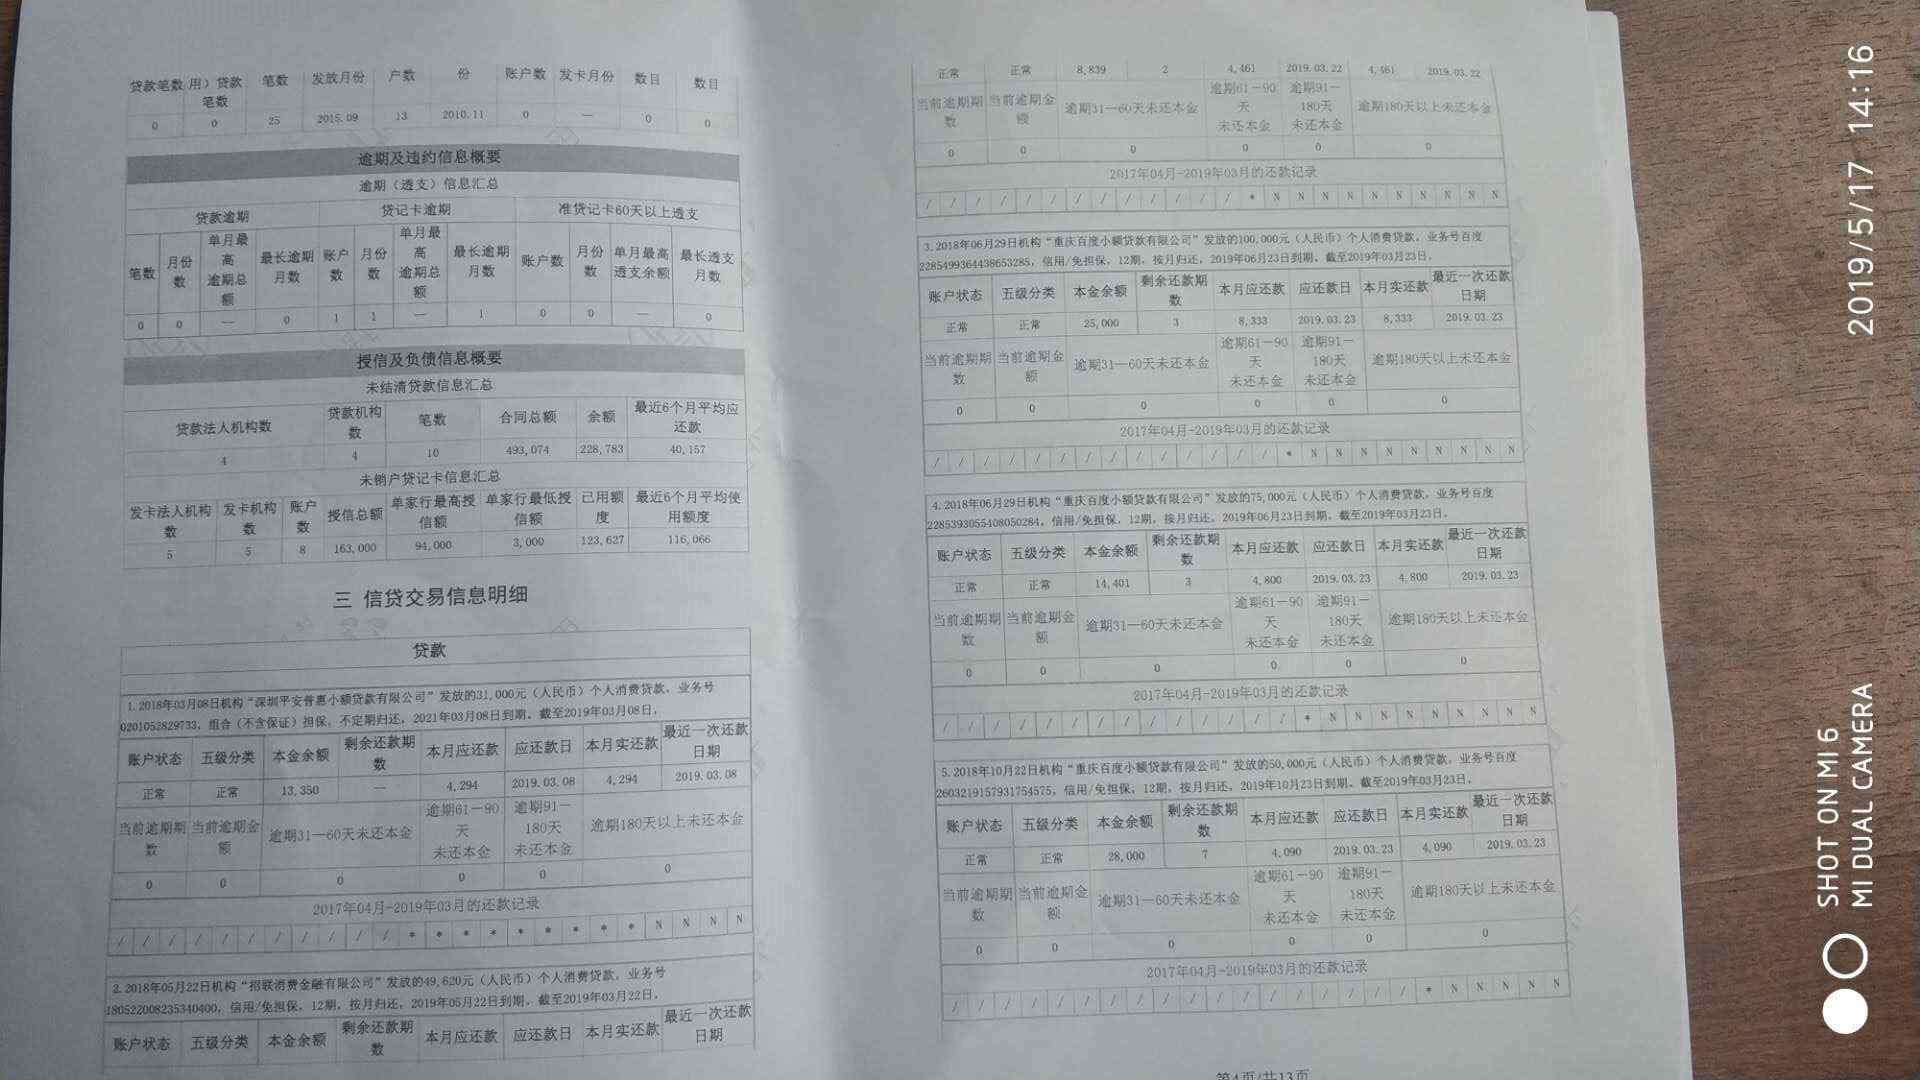 贷款笔数 用）贷款笔数 笔数 发放月份 户数 份 账户数 发卡月份 数目 数目
0 0 25 2015.09 13 2010.11 0 — 0 0
逾期及违约信息概要
逾期（透支）信息汇总
贷款逾期 贷记卡逾期 准贷记卡60天以上透支
笔数 月份数 单月最高逾期总额 最长逾期月数 账户数 月份数 单月最高逾期总额 最长逾期月数 账户数 月份数 单月最高透支余额 最长透支月数
0 0 — 0 1 1 — 1 0 0 — 0
授信及负债信息概要
未结清贷款信息汇总
贷款法人机构数 贷款机构数 笔数 合同总额 余额 最近6个月平均应还款
4 4 10 493,074 228,783 40,157
未销户贷记卡信息汇总
发卡法人机构数 发卡机构数 账户数 授信总额 单家行最高授信额 单家行最低授信额 已用额度 最近6个月平均使用额度
5 5 8 163,000 94,000 3,000 123,627 116,066
三 信贷交易信息明细
贷款
1.2018年03月08日机构“深圳平安普惠小额贷款有限公司”发放的31,000元（人民币）个人消费贷款，业务号
0201052829733，组合（不含保证）担保，不定期归还，2021年03月08日到期。截至2019年03月08日，
账户状态 五级分类 本金余额 剩余还款期数 本月应还款 应还款日 本月实还款 最近一次还款日期
正常 正常 13,350 — 4,294 2019.03.08 4,294 2019.03.08
当前逾期期数 当前逾期金额 逾期31—60天未还本金 逾期61－90天未还本金 逾期91－180天未还本金 逾期180天以上未还本金
0 0 0 0 0 0
2017年04月-2019年03月的还款记录
/ / / / / / / / / / / * * * * * * * * * N N N N
2.2018年05月22日机构“招联消费金融有限公司”发放的49,620元（人民币）个人消费贷款，业务号
180522008235340400，信用/免担保，12期，按月归还，2019年05月22日到期。截至2019年03月22日，
账户状态 五级分类 本金余额 剩余还款期数 本月应还款 应还款日 本月实还款 最近一次还款日期
正常 正常 8,839 2 4,461 2019.03.22 4,461 2019.03.22
当前逾期期数 当前逾期金额 逾期31—60天未还本金 逾期61－90天未还本金 逾期91－180天未还本金 逾期180天以上未还本金
0 0 0 0 0 0
2017年04月-2019年03月的还款记录
/ / / / / / / / / / / / / * N N N N N N N N N N
3.2018年06月29日机构“重庆百度小额贷款有限公司”发放的100,000元（人民币）个人消费贷款，业务号百度
2285499364438653285，信用/免担保，12期，按月归还，2019年06月23日到期。截至2019年03月23日，
账户状态 五级分类 本金余额 剩余还款期数 本月应还款 应还款日 本月实还款 最近一次还款日期
正常 正常 25,000 3 8,333 2019.03.23 8,333 2019.03.23
当前逾期期数 当前逾期金额 逾期31—60天未还本金 逾期61－90天未还本金 逾期91－180天未还本金 逾期180天以上未还本金
0 0 0 0 0 0
2017年04月-2019年03月的还款记录
/ / / / / / / / / / / / / / * N N N N N N N N N
4.2018年06月29日机构“重庆百度小额贷款有限公司”发放的75,000元（人民币）个人消费贷款，业务号百度
2285393055408050284，信用/免担保，12期，按月归还，2019年06月23日到期。截至2019年03月23日，
账户状态 五级分类 本金余额 剩余还款期数 本月应还款 应还款日 本月实还款 最近一次还款日期
正常 正常 14,401 3 4,800 2019.03.23 4,800 2019.03.23
当前逾期期数 当前逾期金额 逾期31—60天未还本金 逾期61－90天未还本金 逾期91－180天未还本金 逾期180天以上未还本金
0 0 0 0 0 0
2017年04月-2019年03月的还款记录
/ / / / / / / / / / / / / / * N N N N N N N N N
5.2018年10月22日机构“重庆百度小额贷款有限公司”发放的50,000元（人民币）个人消费贷款，业务号百度
2603219157931754575，信用/免担保，12期，按月归还，2019年10月23日到期。截至2019年03月23日，
账户状态 五级分类 本金余额 剩余还款期数 本月应还款 应还款日 本月实还款 最近一次还款日期
正常 正常 28,000 7 4,090 2019.03.23 4,090 2019.03.23
当前逾期期数 当前逾期金额 逾期31—60天未还本金 逾期61－90天未还本金 逾期91－180天未还本金 逾期180天以上未还本金
0 0 0 0 0 0
2017年04月-2019年03月的还款记录
/ / / / / / / / / / / / / / / / / / * N N N N N
第4页/共13页
SHOT ON MI 6
MI DUAL CAMERA
2019/5/17 14:16